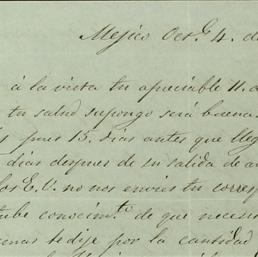 Mejico Oct.e 4. de
à la vista tu apreciable 11. d
tu salud supongo será buena.
pues 15. dias antes que lleg
dias despues de su salida de a
los E. U. no nos envies tu corresp
tube conocim.to de que necesi
te dije por la cantidad